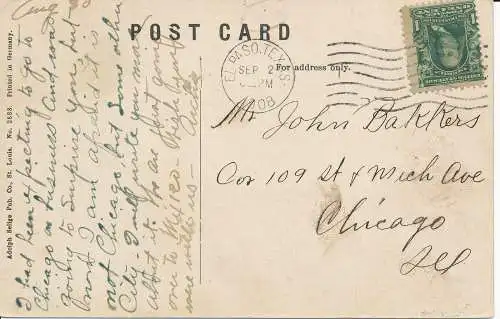 Aug
POST CARD
For address only.
EL PASO, TEXAS.
SEP 2
PM
'08
1
Mr John Bakkers
Cor 109 St & Mich Ave
Chicago
Ill
Adolph Selige Pub. Co., St. Louis. No. 2838. Printed in Germany.
I had been expecting to go to
Chicago on business and was
going to surprise you, but
now I am afraid it is
not Chicago but some other
City - I will write you more
about it. We are just going
over to Mexico -
come with us -